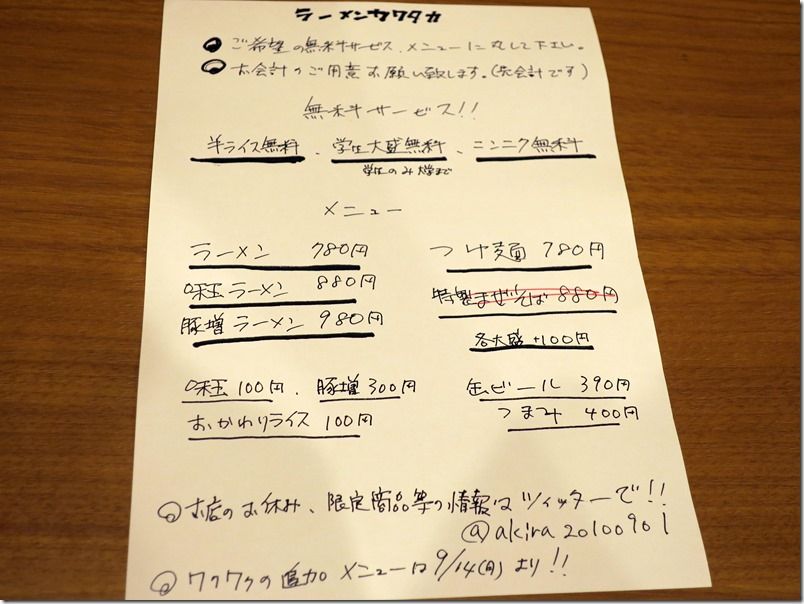 ラーメンカワタカ
ご希望の無料サービス、メニューに丸して下さい。
お会計のご用意お願い致します。(先会計です)
無料サービス!!
半ライス無料、学生大盛無料、ニンニク無料
学生のみ大学まで
メニュー
ラーメン 780円 つけ麺 780円
味玉ラーメン 880円 特製まぜそば 880円
豚増ラーメン 980円 各大盛+100円
味玉100円、豚増300円 缶ビール 390円
おかわりライス 100円 つまみ 400円
お店のお休み、限定商品等の情報はツイッターで!!
@akira20100901
ワクワクの追加メニューは9/14(月)より!!